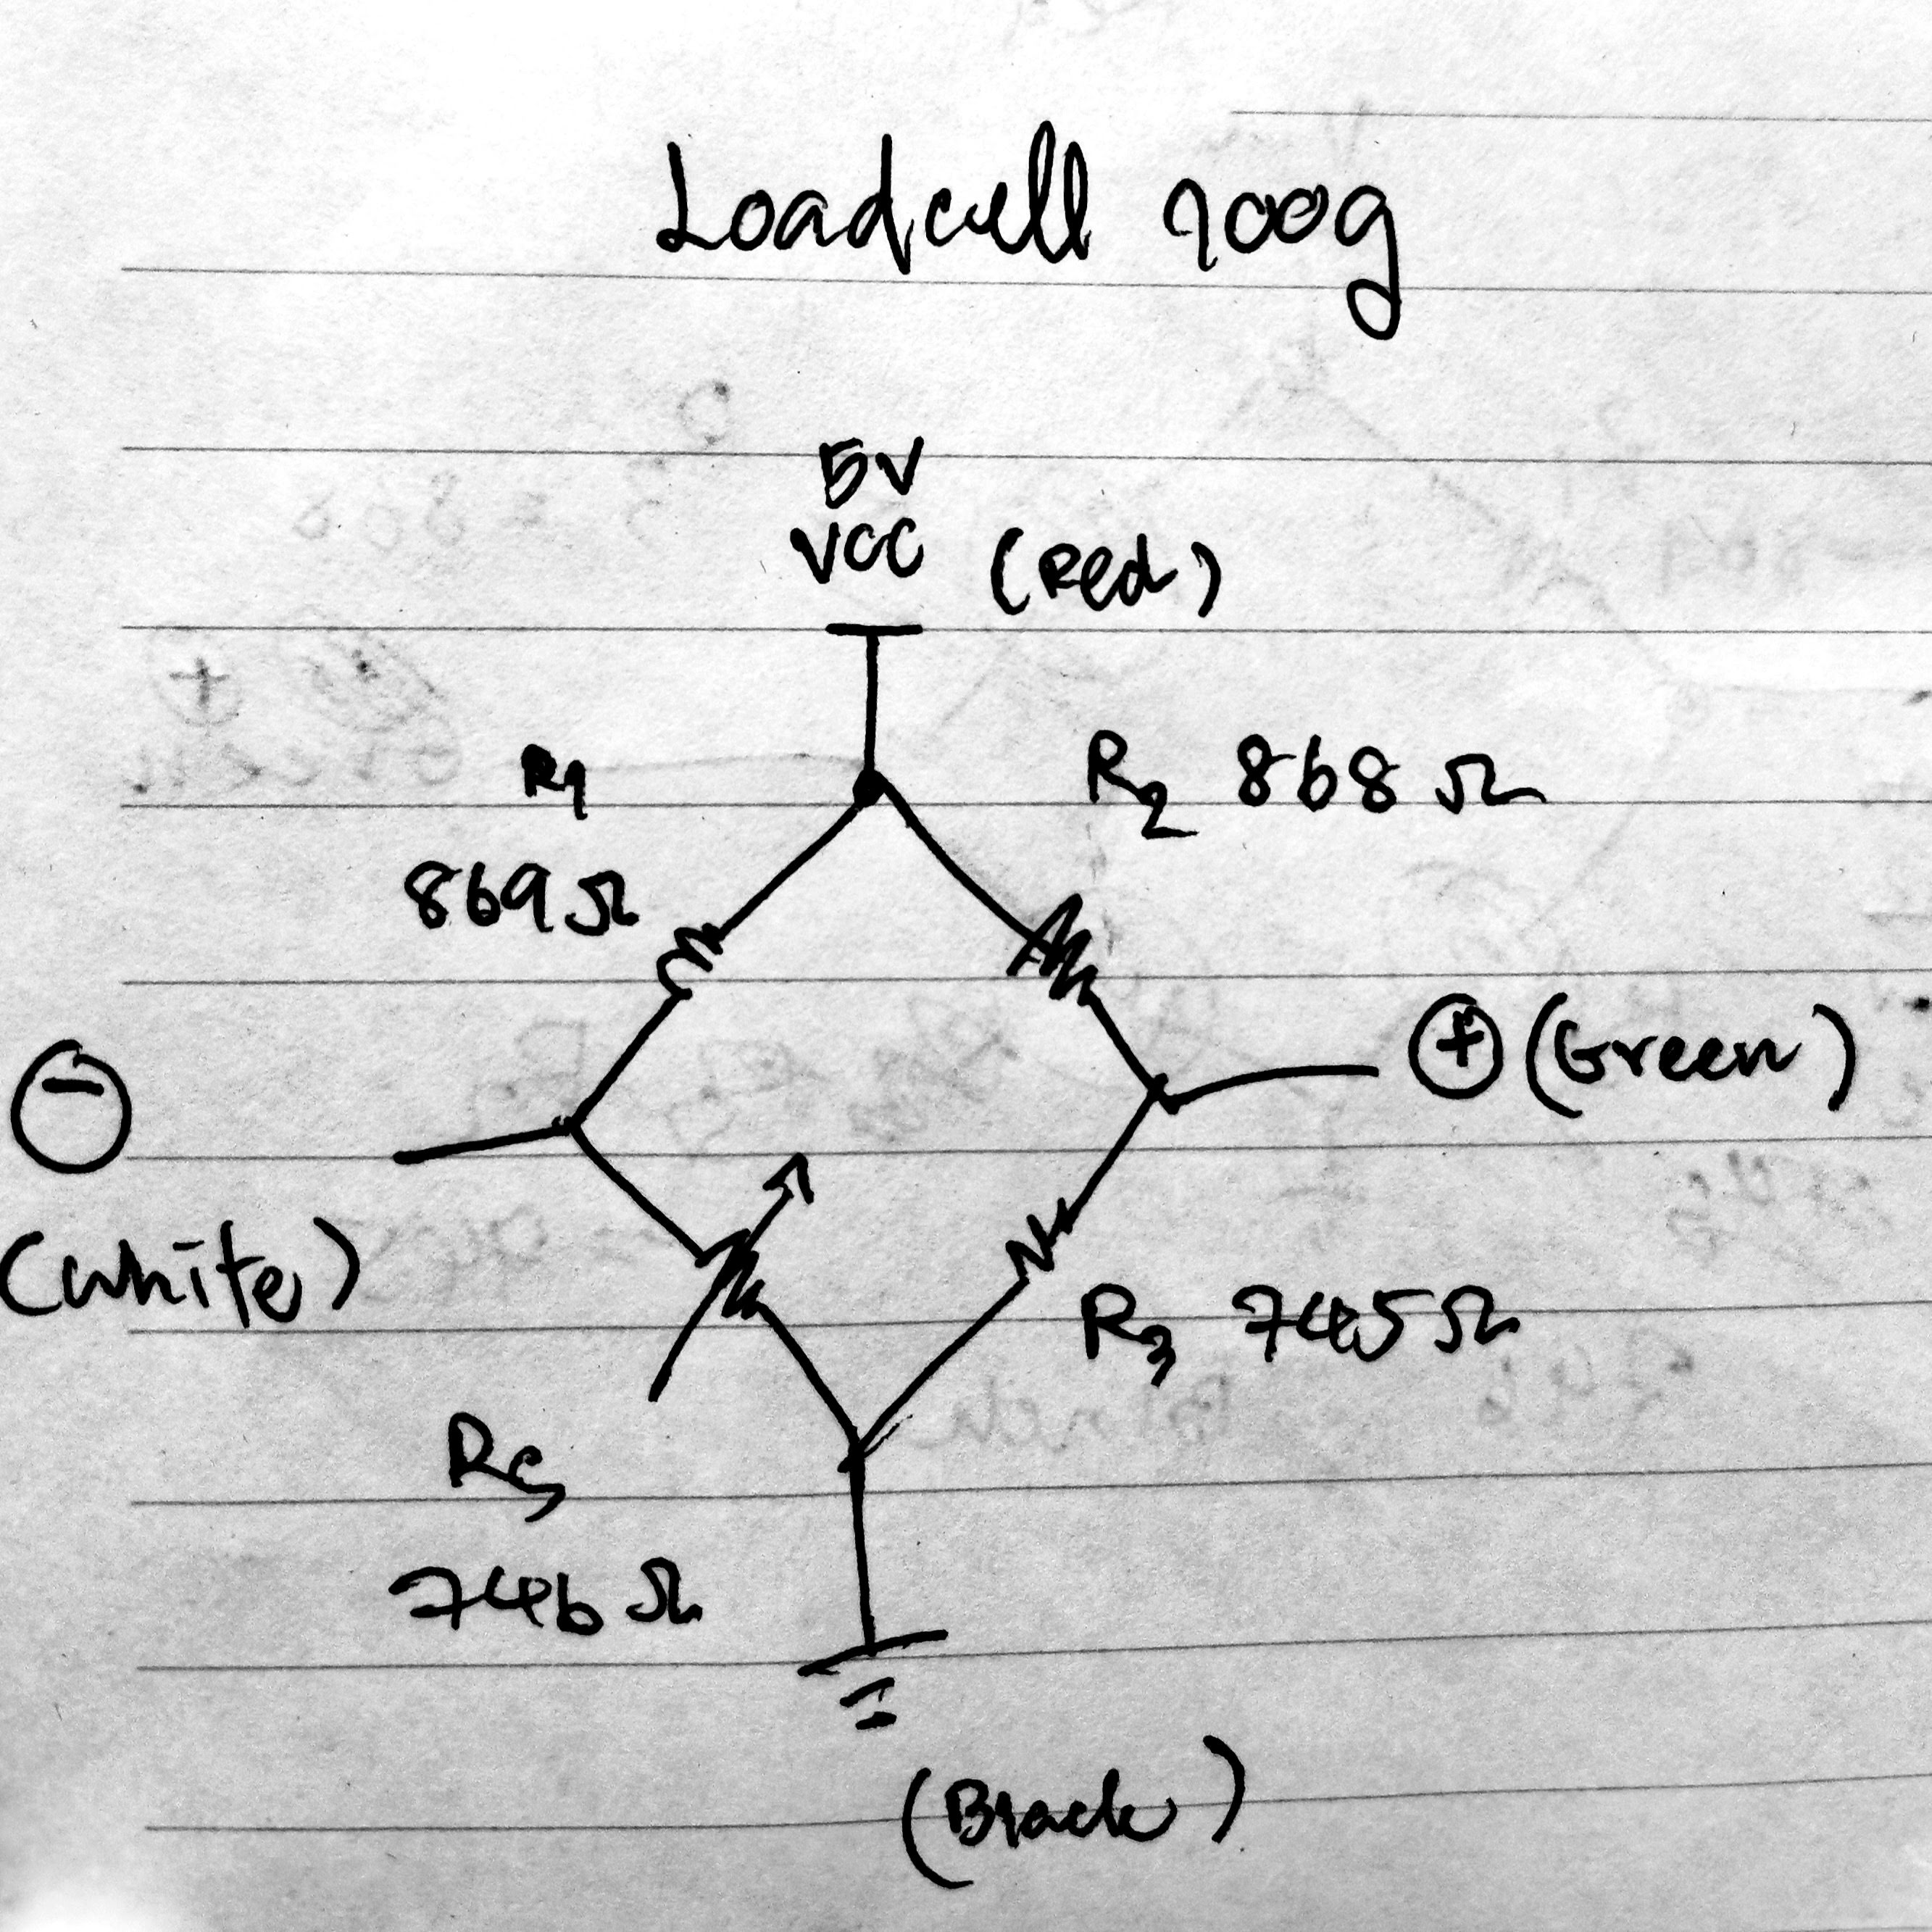 Loadcell 100g
5V
VCC (Red)
R1
869Ω
R2 868Ω
- (white)
+ (Green)
R3 745Ω
RS
746Ω
(Black)